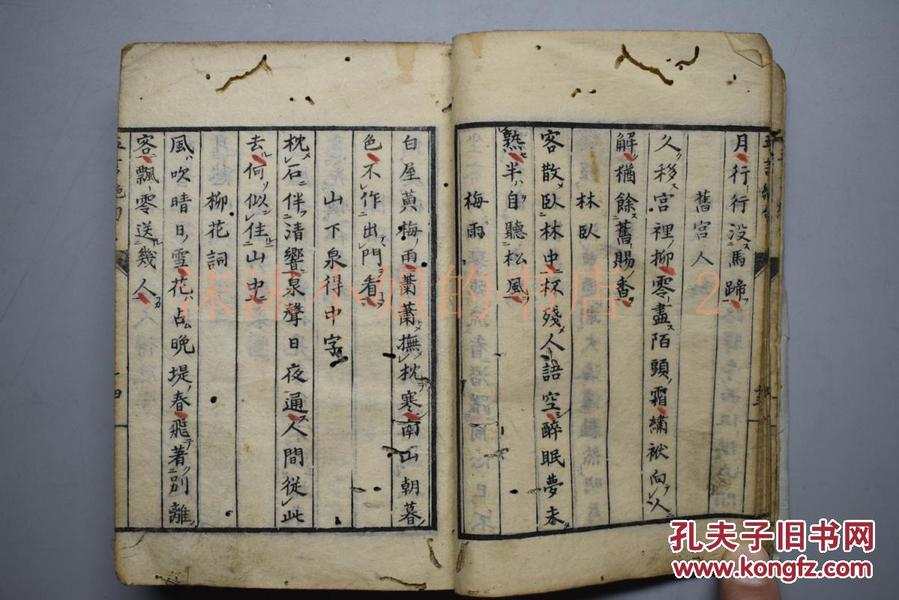 月行行没馬蹄
舊宮人
久移宮裡柳零盡陌頭霜繡袱向人
解猶餘舊賜香
林臥
客散臥林中杯殘人語空醉眠夢未
熟半自聽松風
梅雨
白屋黃梅雨蕭蕭撫枕寒南山朝暮
色不作出門看
山下泉得中字
枕石伴清響泉聲日夜通人間從此
去何似住山中
柳花詞
風吹晴日雪花占晚堤春飛著別離
客飄零送幾人
孔夫子旧书网
www.kongfz.com